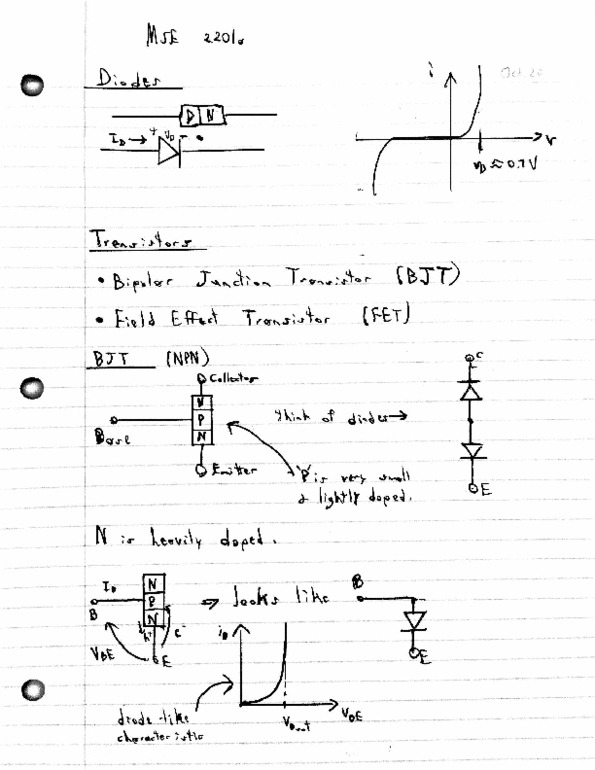 MSE 2201b
Oct 20
Diodes
P N
I_D → + V_D -
i
v
v_D ≈ 0.7V
Transistors
• Bipolar Junction Transistor (BJT)
• Field Effect Transistor (FET)
BJT (NPN)
Collector
C
N
P
N
Base
Think of diodes →
Emitter
'P' is very small
& lightly doped.
E
N is heavily doped.
I_B
N
P
N
B
→ looks like
B
h+
e-
V_BE
E
i_B
E
diode-like
characteristic
V_BE